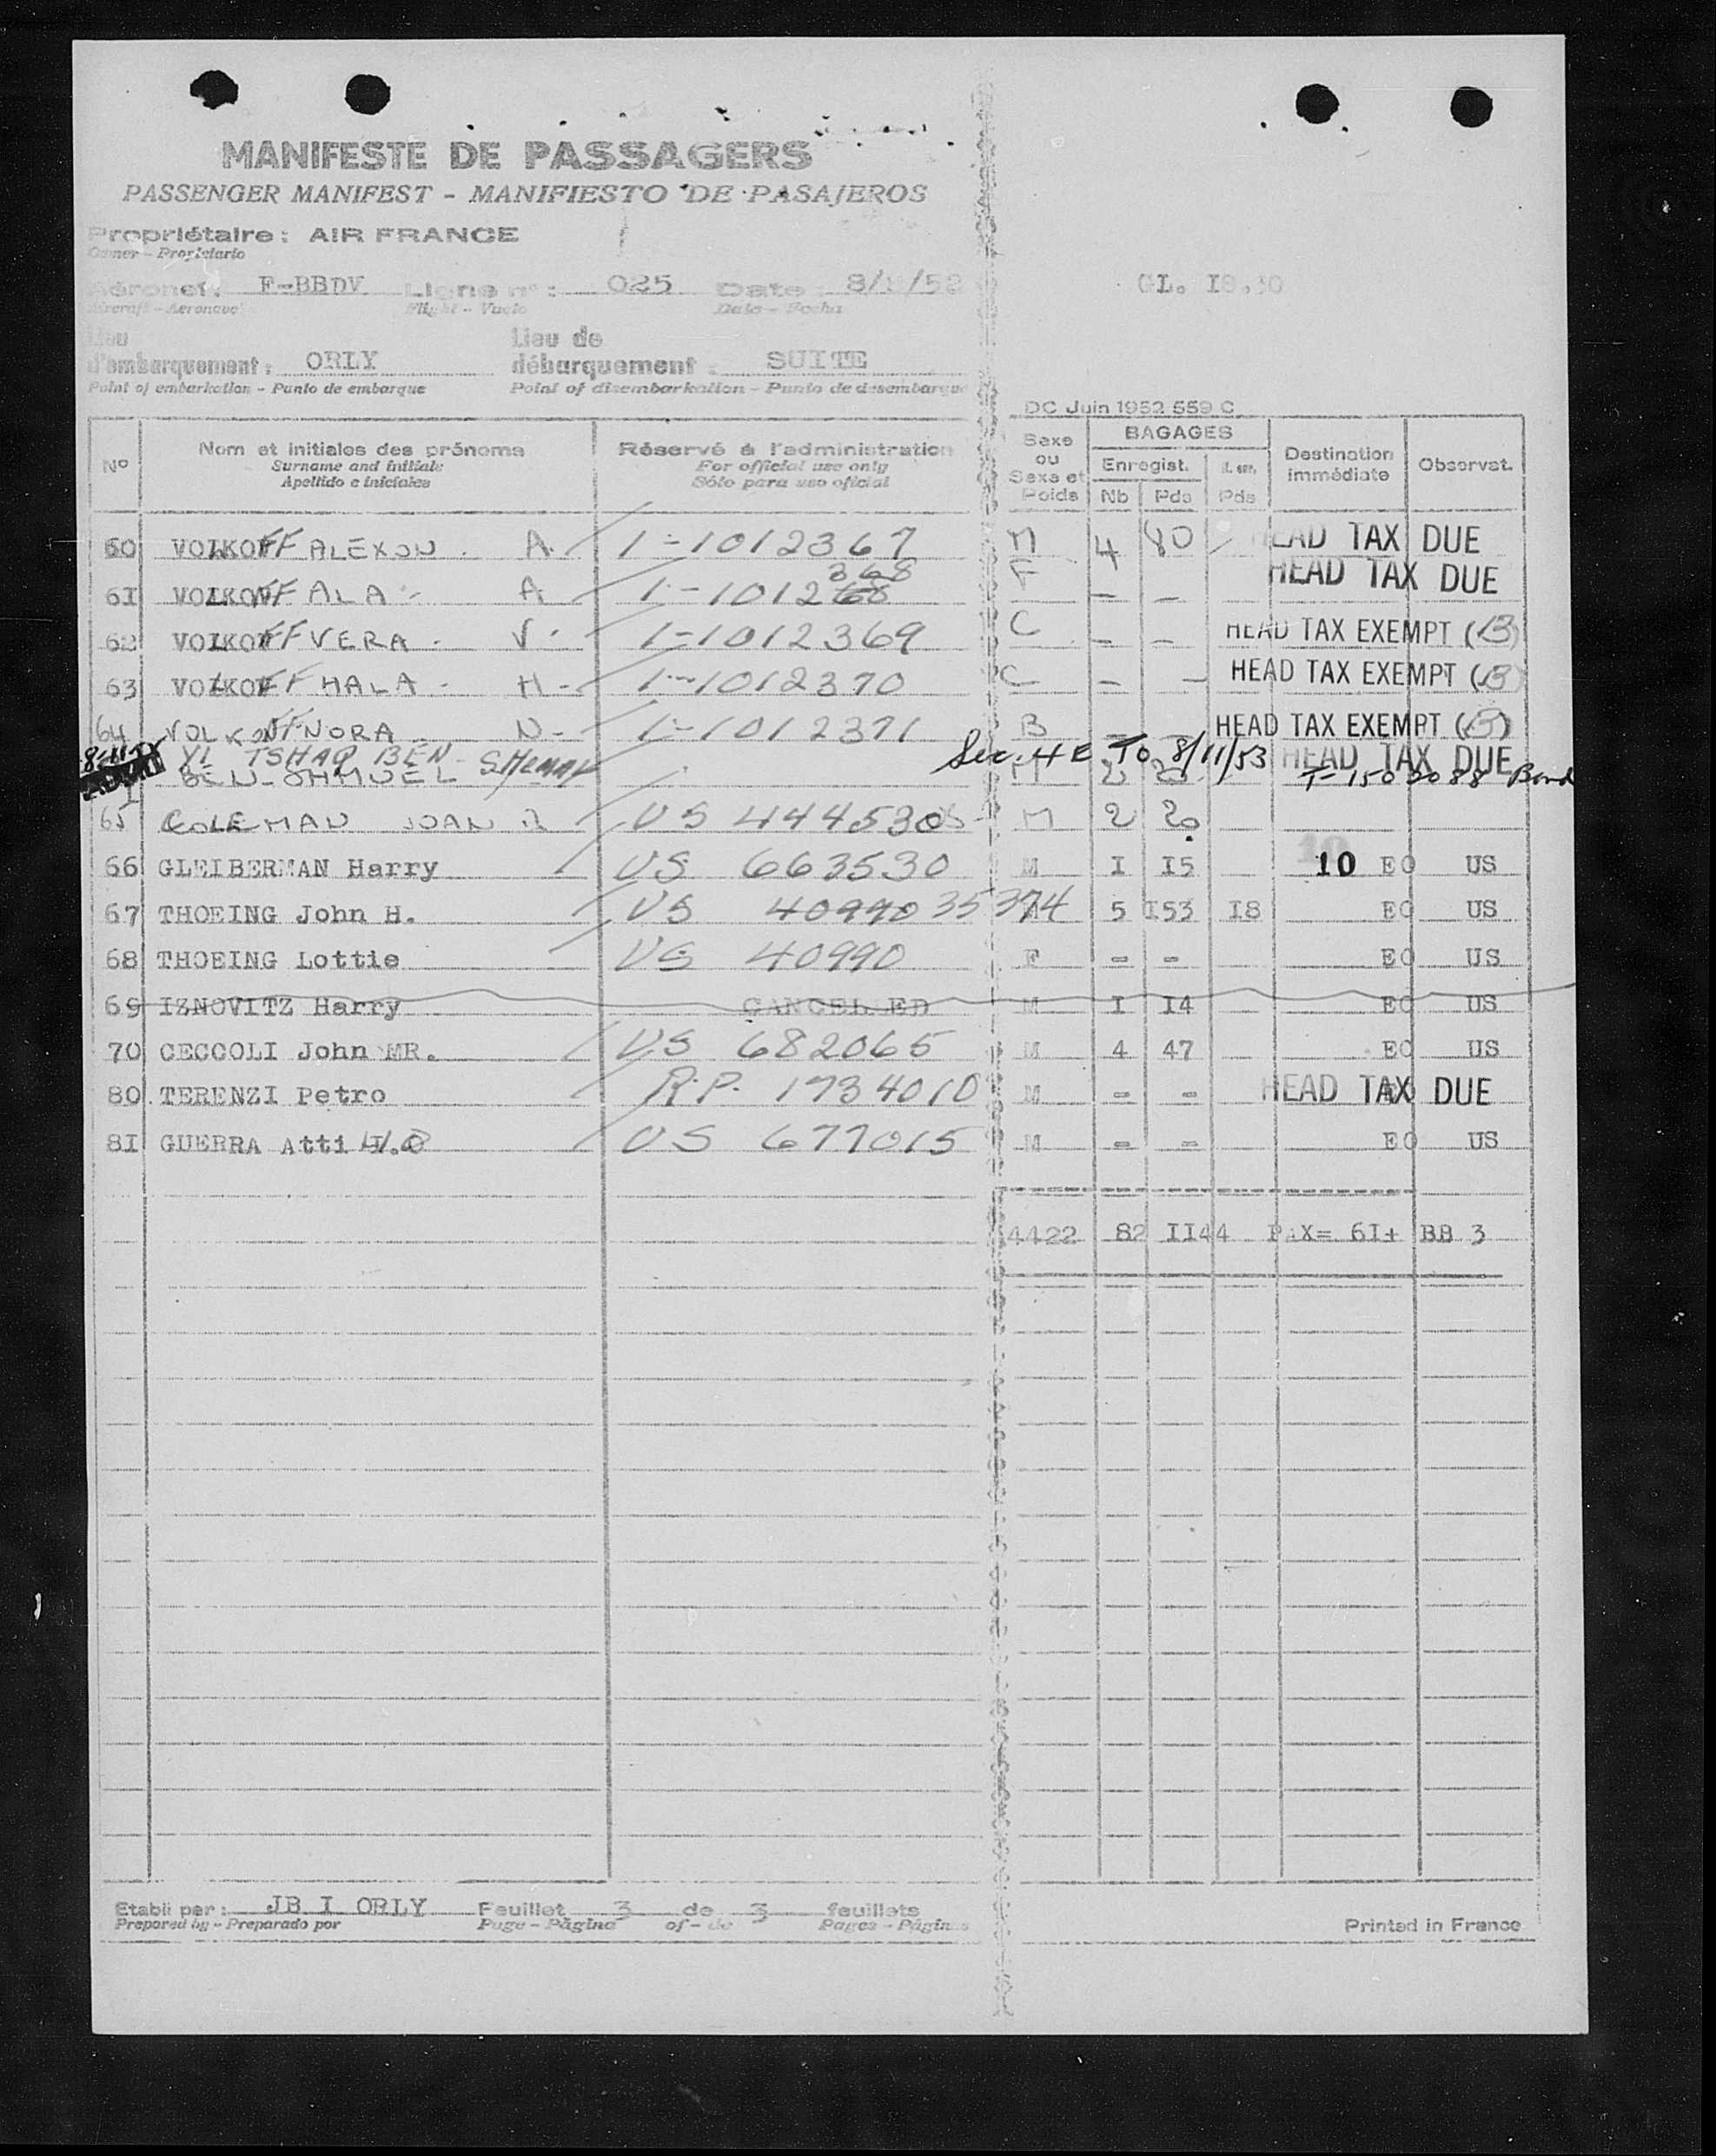 MANIFESTE DE PASSAGERS
PASSENGER MANIFEST - MANIFIESTO DE PASAJEROS
Propriétaire : AIR FRANCE
Owner - Propietario
Aéronef : F-BBDV Ligne n° : 025 Date : 8/ /52 GL. I8.30
Aircraft - Aeronave Flight - Vuelo Date - Fecha
Lieu d'embarquement : ORLY Lieu de débarquement : SUITE
Point of embarkation - Punto de embarque Point of disembarkation - Punto de desembarque
DC Juin 1952 559 C
N° Nom et initiales des prénoms Réservé à l'administration Sexe ou Sexe et Poids BAGAGES Destination immédiate Observat.
Surname and initials For official use only Enregist.
Apellido e iniciales Sólo para uso oficial Nb Pds Pds
60 VOLKOFF ALEXON A. 1-1012367 M 4 80 HEAD TAX DUE
61 VOLKOFF ALA A 1-101268 368 F - - HEAD TAX DUE
62 VOLKOFF VERA - V. 1-1012369 C - - HEAD TAX EXEMPT (B)
63 VOLKOFF MALA - M- 1-1012370 C - - HEAD TAX EXEMPT (B)
64 VOLKOFF NORA N- 1-1012371 B - - HEAD TAX EXEMPT (B)
YI TSHAQ BEN Sec. 4 E To 8/11/53 HEAD TAX DUE
BEN-SHMUEL M 2 T-1503088 Bond
65 COLEMAN JOAN US 444530 M 2 20
66 GLEIBERMAN Harry US 663530 M I I5 10 EC US
67 THOEING John H. US 40990 35374 5 I53 I8 EC US
68 THOEING Lottie US 40990 F - - EC US
69 IZNOVITZ Harry CANCELLED M I I4 EC US
70 CECCOLI John MR. US 682065 M 4 47 EC US
80 TERENZI Petro R.P. 1734010 M - - HEAD TAX DUE
8I GUERRA Atti US 677015 M - - EC US
4422 82 II44 PAX= 6I+ BB 3
Etabli par : JB I ORLY Feuillet 3 de 3 feuillets
Prepared by - Preparado por Page - Página of - de Pages - Páginas
Printed in France